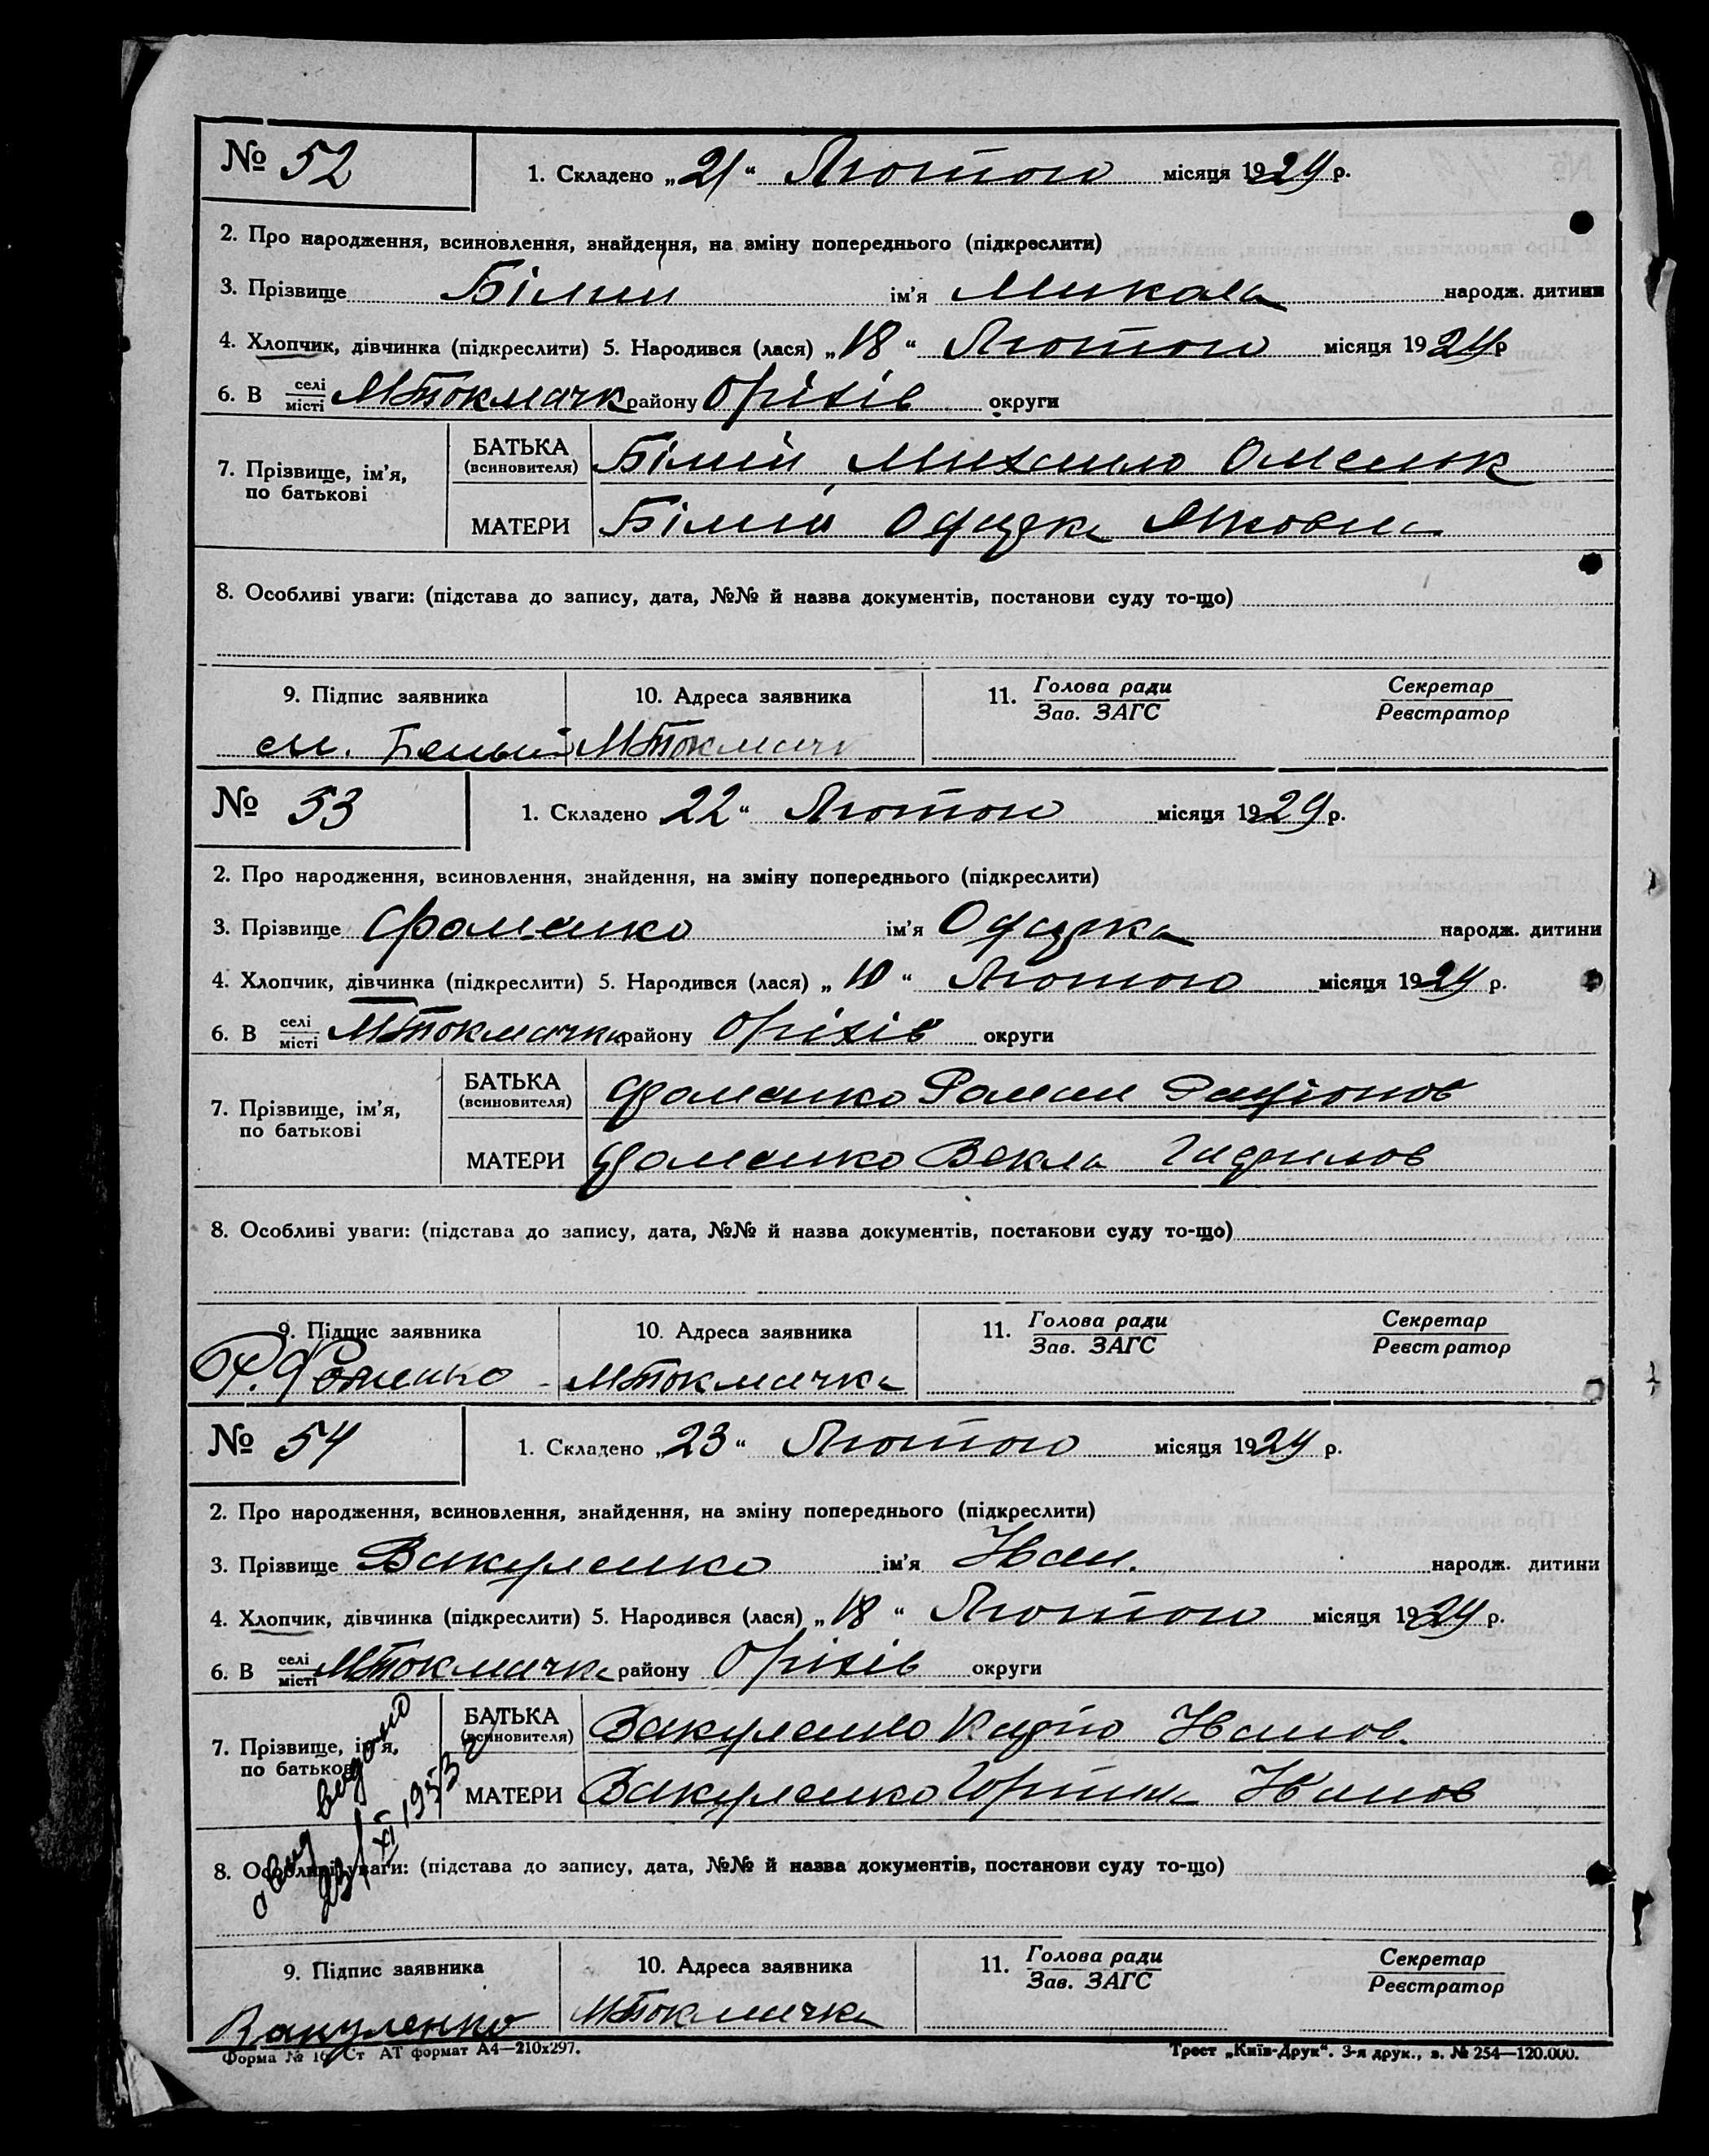 № 52 1. Складено „21“ Лютого місяця 1929 р.
2. Про народження, всиновлення, знайдення, на зміну попереднього (підкреслити)
3. Прізвище Білий ім’я Микола народж. дитини
4. Хлопчик, дівчинка (підкреслити) 5. Народився (лася) „18“ Лютого місяця 1929 р
6. В селі місті МТокмачк району Оріхів округи
7. Прізвище, ім’я, по батькові
БАТЬКА (всиновителя) Білий Михайло Омельк
МАТЕРИ Білий Одарка Яковна
8. Особливі уваги: (підстава до запису, дата, №№ й назва документів, постанови суду то-що)
9. Підпис заявника 10. Адреса заявника 11. Голова ради Зав. ЗАГС Секретар Реєстратор
М. Белый МТокмачк
№ 53 1. Складено 22“ Лютого місяця 1929 р.
2. Про народження, всиновлення, знайдення, на зміну попереднього (підкреслити)
3. Прізвище Фоменко ім’я Одарка народж. дитини
4. Хлопчик, дівчинка (підкреслити) 5. Народився (лася) „10“ Лютого місяця 1929 р.
6. В селі місті МТокмачка району Оріхів округи
7. Прізвище, ім’я, по батькові
БАТЬКА (всиновителя) Фоменко Роман
МАТЕРИ Фоменко Векла Гаврилов
8. Особливі уваги: (підстава до запису, дата, №№ й назва документів, постанови суду то-що)
9. Підпис заявника 10. Адреса заявника 11. Голова ради Зав. ЗАГС Секретар Реєстратор
Фоменко МТокмачка
№ 54 1. Складено „23“ Лютого місяця 1929 р.
2. Про народження, всиновлення, знайдення, на зміну попереднього (підкреслити)
3. Прізвище Вакуленко ім’я Іван. народж. дитини
4. Хлопчик, дівчинка (підкреслити) 5. Народився (лася) „18“ Лютого місяця 1929 р.
6. В селі місті МТокмачка району Оріхів округи
7. Прізвище, ім’я, по батькові
БАТЬКА (всиновителя) Вакуленко Іванов.
МАТЕРИ Вакуленко Горпина Іванов
видано
23/XI 1953 г
8. Особливі уваги: (підстава до запису, дата, №№ й назва документів, постанови суду то-що)
9. Підпис заявника 10. Адреса заявника 11. Голова ради Зав. ЗАГС Секретар Реєстратор
Вакуленко МТокмачка
Форма № 16 Ст АТ формат А4—210х297. Трест „Київ-Друк“. 3-я друк., з. № 254—120.000.